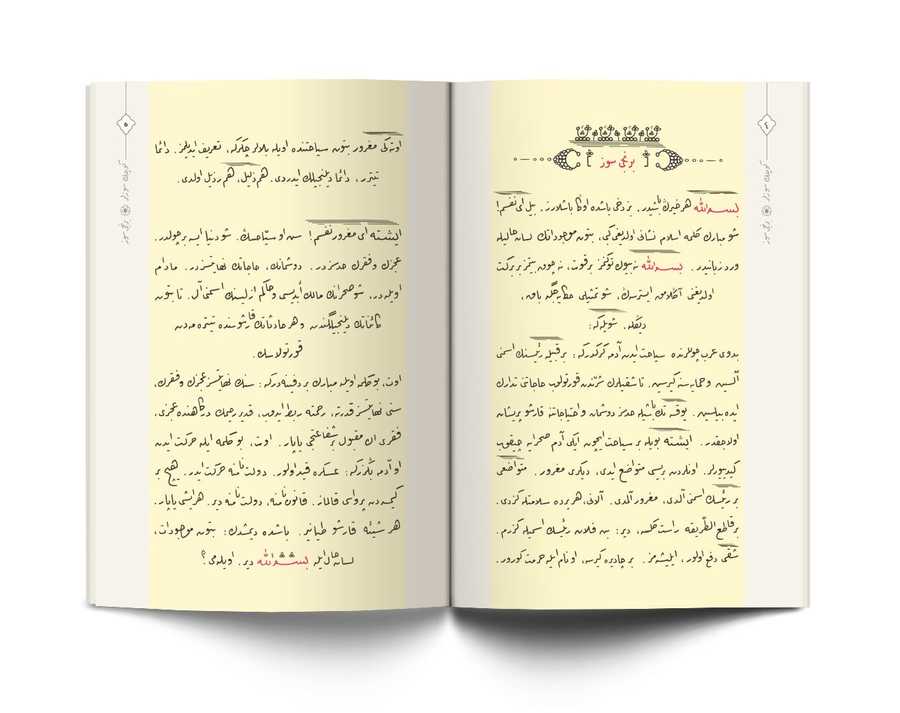 برنجی سوز
بسم الله هر خیرك باشیدر. بز دخی باشده اوڭا باشلارز. بیل ای نفسم!
شو مبارك كلمه اسلام نشانی اولدیغی كبی، بتون موجوداتك لسان حالیله
ورد زبانیدر. بسم الله نه بیوك توكنمز بر قوت، نه چوق بیتمز بر بركت
اولدیغنی آڭلامق ایسترسه‌ڭ، شو تمثیلی حكایه‌جگه باق،
دیڭله. شویله كه:
بدوی عرب چوللرنده سیاحت ایدن آدمه كركدر كه: بر قبیله رئیسنك اسمنی
آلسین و حمایه‌سنه كیرسین. تا شقیلرك شرّندن قورتولوب حاجاتنی تدارك
ایده‌بیلسین. یوقسه تك باشیله حدسز دوشمان و احتیاجاتنه قارشو پریشان
اولاجقدر. ایشته بویله بر سیاحت ایچون ایكی آدم صحرایه چیقوب
كیدییورلر. اونلردن بریسی متواضع ایدی، دیگری مغرور. متواضعی
بر رئیسك اسمنی آلدی. مغرور آلمدی. آلانی، هر یرده سلامتله كزدی.
بر قاطع الطّریقه راست كلسه، دیر: بن فلان رئیسك اسمیله كزرم.
شقی دفع اولور، ایلیشه‌مز. بر چادیره كیرسه، او نام ایله حرمت كورور.
٤
كوچك سوزلر
برنجی سوز
اوته‌كی مغرور بتون سیاحتنده اویله بلالر چكر كه، تعریف ایدیلمز. دائما
تیترر، دائما دیلنجیلك ایدردی. هم ذلیل، هم رذیل اولدی.
ایشته ای مغرور نفسم! سن او سیّاحسڭ. شو دنیا ایسه بر چولدر.
عجزڭ و فقرڭ حدسزدر. دوشمانڭ، حاجاتڭ نهایتسزدر. مادام
اویله‌در، شو صحرانك مالك ابدیسی و حاكم ازلیسنك اسمنی آل. تا بتون
كائناتك دیلنجیلگندن و هر حادثاتك قارشوسنده تیتره‌مه‌دن
قورتولاسڭ.
اوت، بو كلمه اویله مبارك بر دفینه‌در كه: سنك نهایتسز عجزڭ و فقرڭ،
سنی نهایتسز قدرته، رحمته ربط ایدوب، قدیر رحیمك درگاهنده عجزی،
فقری اڭ مقبول بر شفاعتجی یاپار. اوت، بو كلمه ایله حركت ایدن
او آدمه بڭزر كه: عسكره قید اولور. دولت نامنه حركت ایدر. هیچ بر
كیمسه‌دن پرواسی قالماز. قانون نامنه، دولت نامنه دیر. هر ایشی یاپار.
هر شیئه قارشو طیانیر. باشده دیمشدك: بتون موجودات،
لسان حال ایله بسم الله دیر. اویله‌می؟
٥
كوچك سوزلر
برنجی سوز